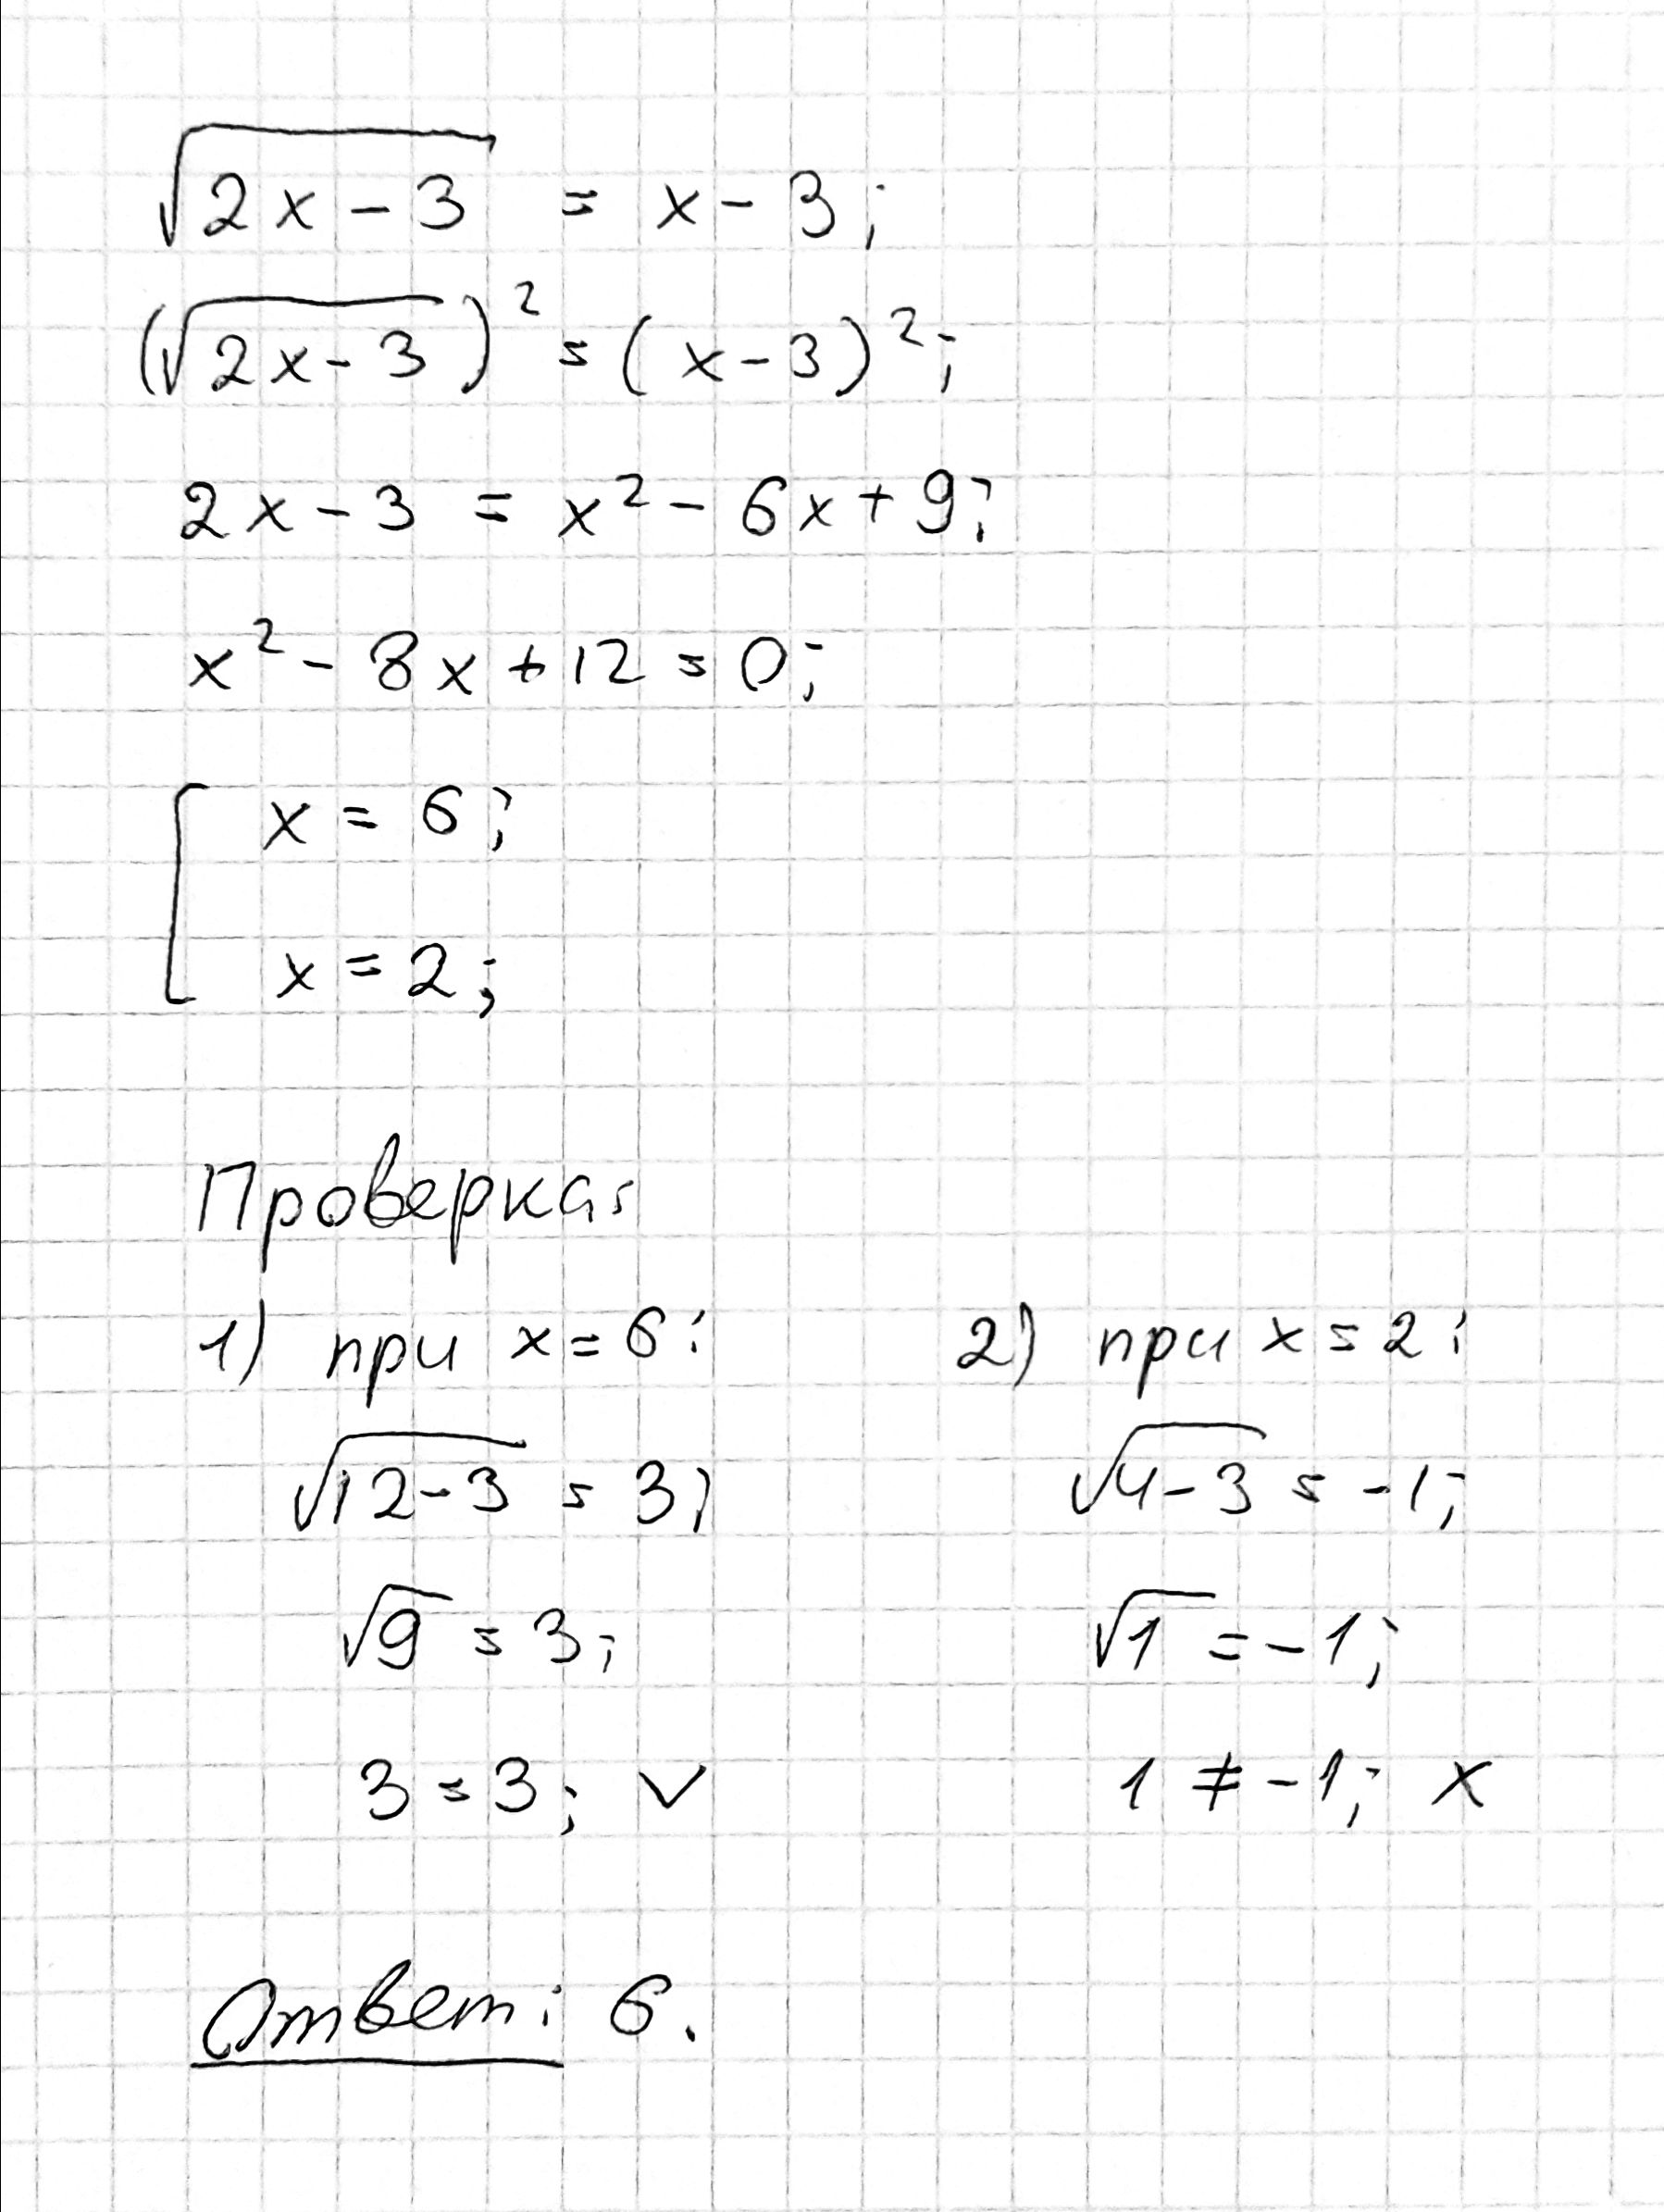 √(2x-3) = x-3;
(√(2x-3))² = (x-3)²;
2x-3 = x²-6x+9;
x²-8x+12=0;
[ x = 6;
x = 2;
Проверка:
1) при x=6:
√(12-3) = 3;
√9 = 3;
3=3; ✓
2) при x=2:
√(4-3) = -1;
√1 = -1;
1 ≠ -1; x
Ответ: 6.